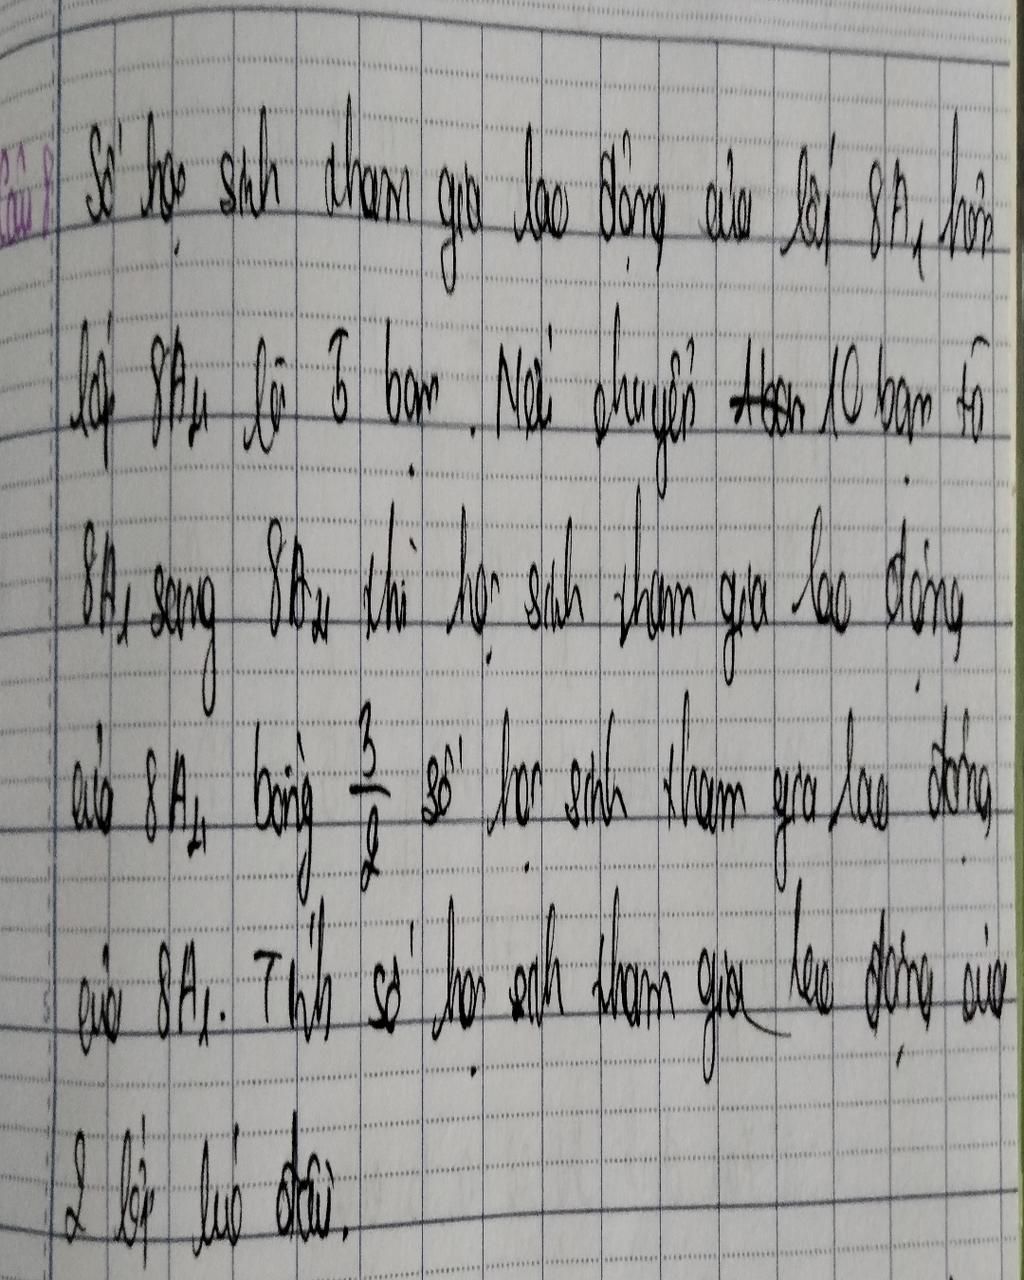 Câu 8. Số học sinh tham gia lao động của lớp 8A₁ hơn
lớp 8A₄ là 5 bạn. Nếu chuyển 10 bạn từ
8A₁ sang 8A₄ thì học sinh tham gia lao động
của 8A₄ bằng 3/2 số học sinh tham gia lao động
của 8A₁. Tính số học sinh tham gia lao động của
2 lớp lúc đầu.